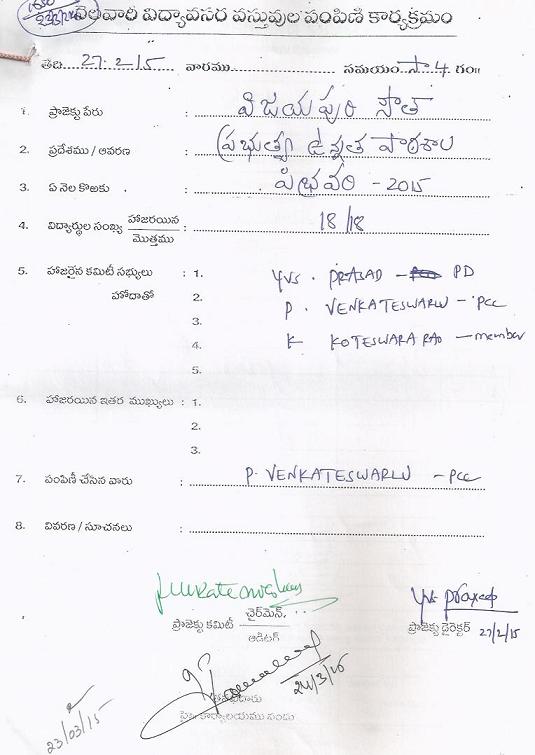 నెలవారి విద్యావసర వస్తువుల పంపిణి కార్యక్రమం
తేది 27-2-15 వారము సమయం సా 4 గం॥
1. ప్రాజెక్టు పేరు : విజయపురి సౌత్
2. ప్రదేశము / ఆవరణ : ప్రభుత్వ ఉన్నత పాఠశాల
3. ఏ నెల కొఱకు : పిభ్రవరి - 2015
4. విద్యార్థుల సంఖ్య హాజరయిన / మొత్తము : 18/18
5. హాజరైన కమిటీ సభ్యులు : 1. YVS. PRASAD - PD
హోదాతో 2. P. VENKATESWARLU - PCC
3. K KOTESWARA RAO - member
4.
5.
6. హాజరయిన ఇతర ముఖ్యులు : 1.
2.
3.
7. పంపిణీ చేసిన వారు : P. VENKATESWARLU - PCC
8. వివరణ / సూచనలు :
ఛైర్‌మెన్.
ప్రాజెక్టు కమిటీ
ఆడిటర్
ప్రాజెక్టు డైరెక్టర్ 27/2/15
24/3/15
23/03/15